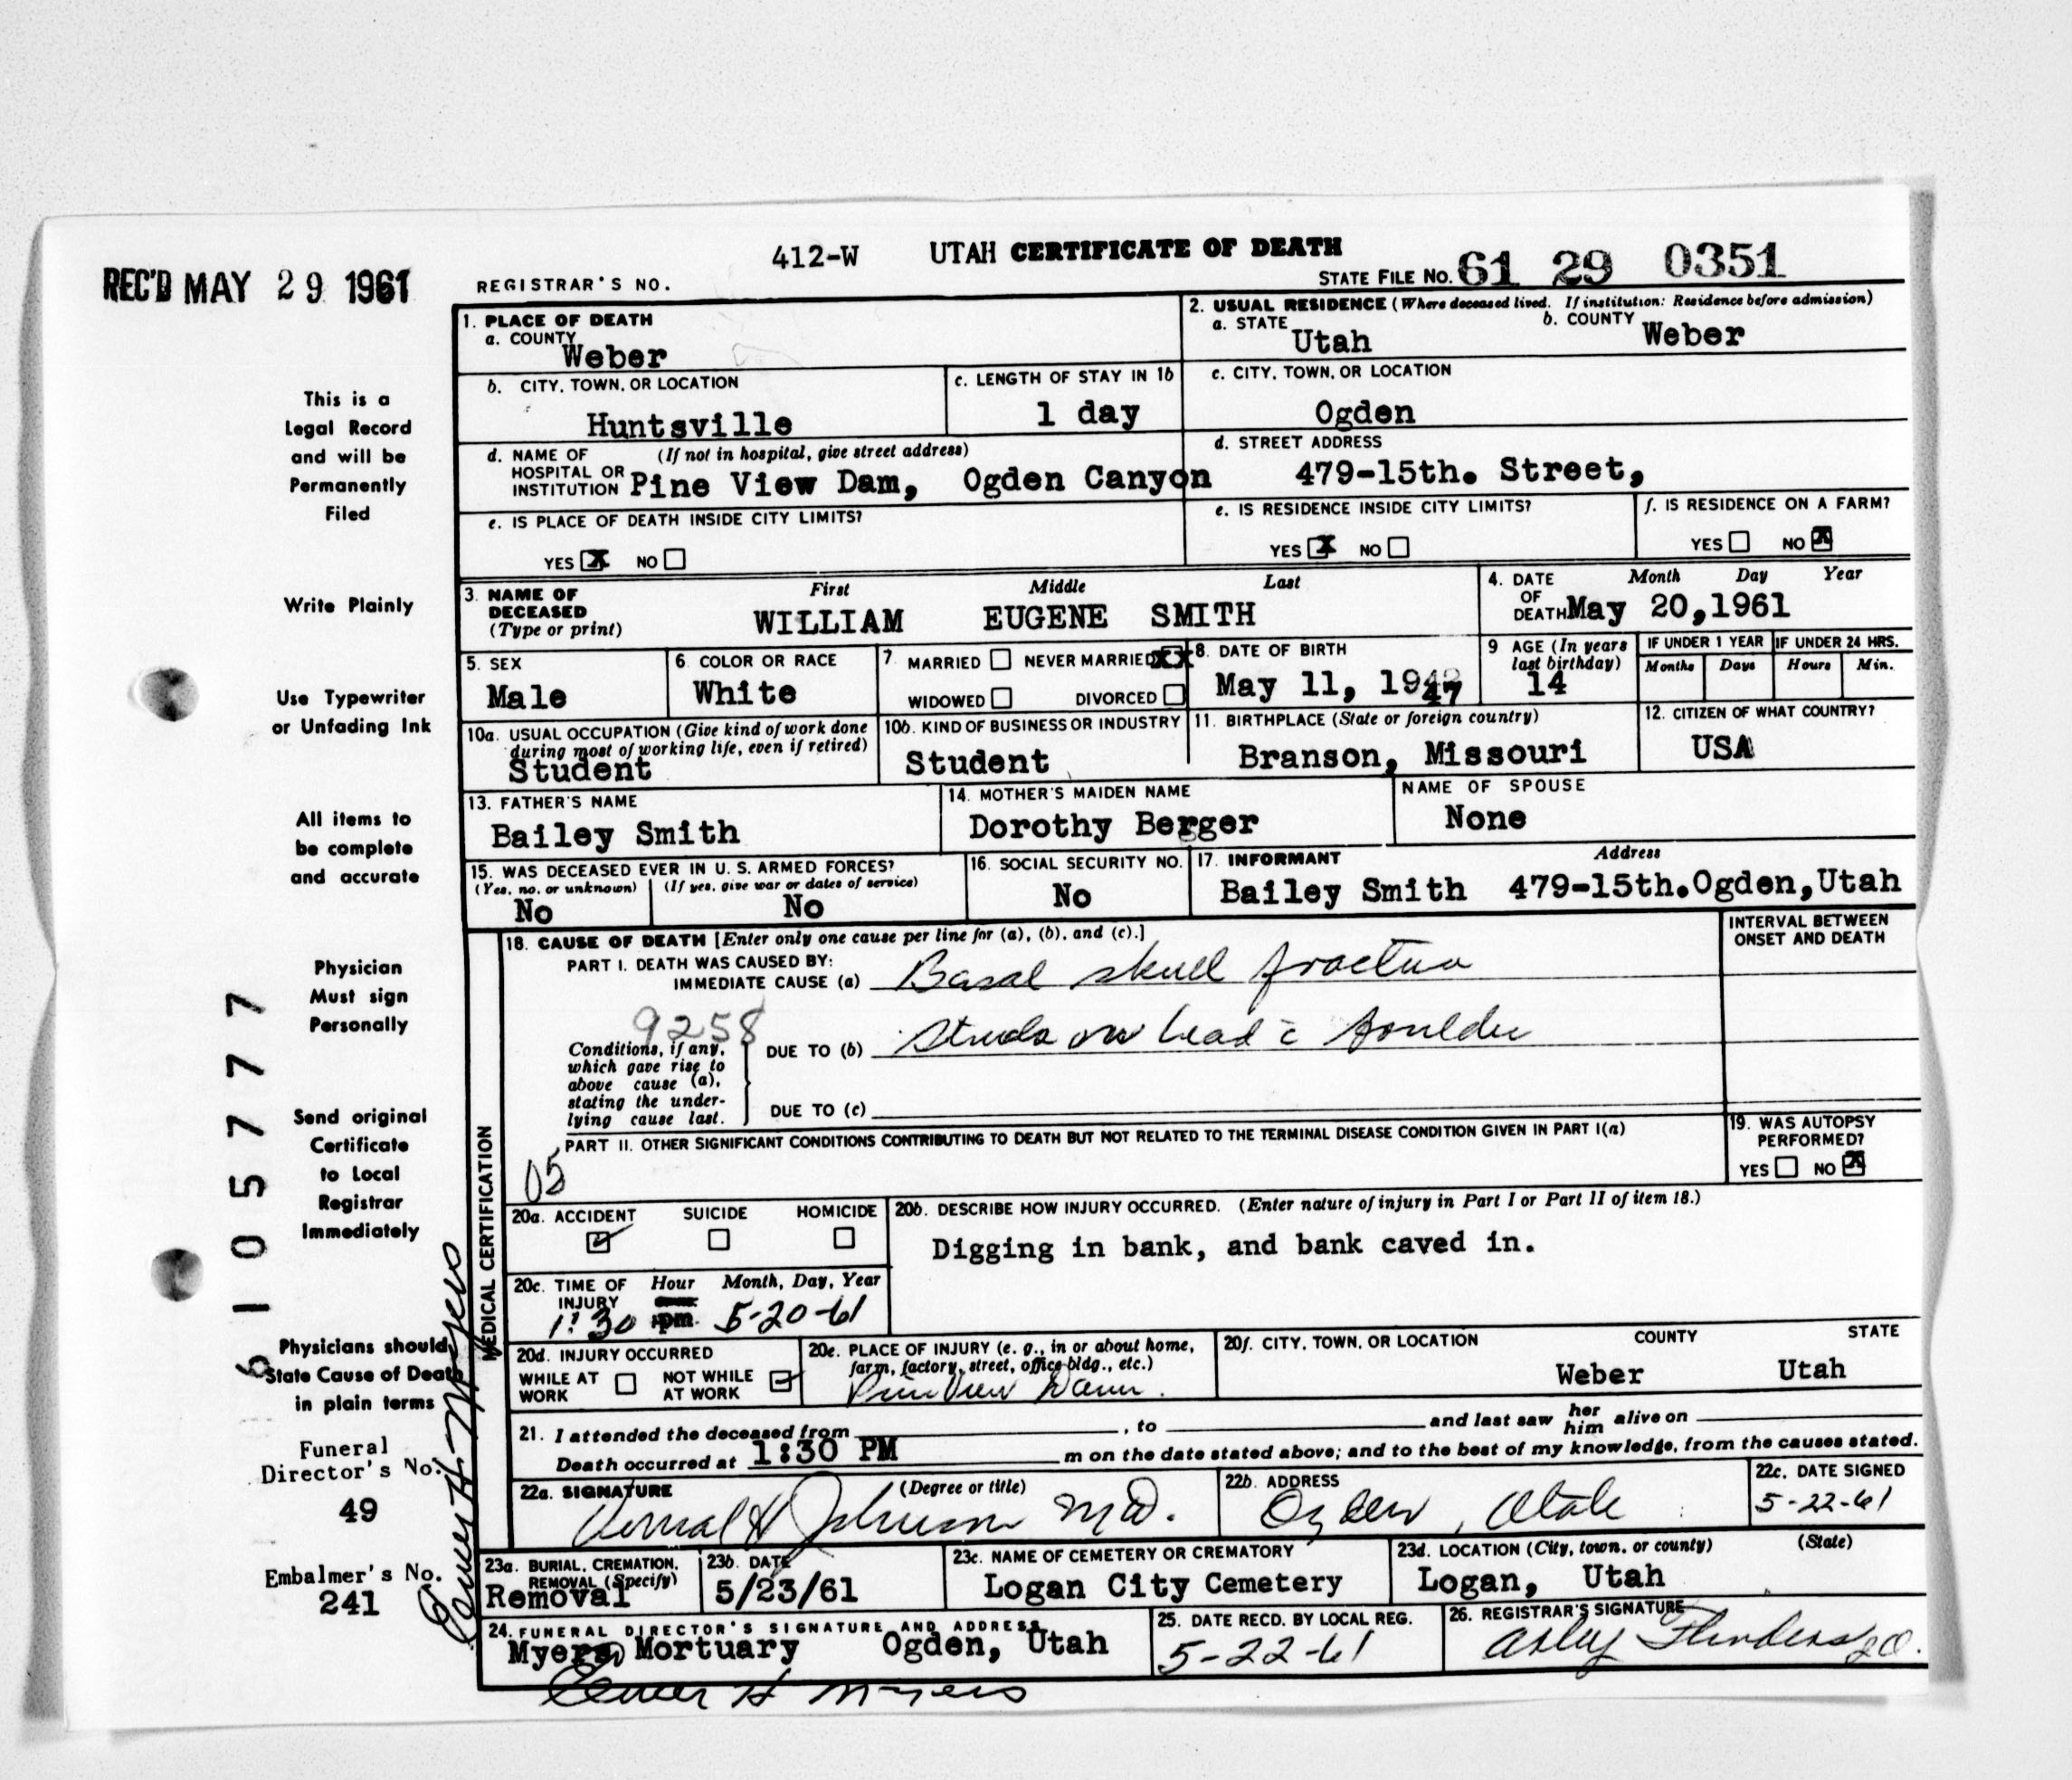 412-W UTAH CERTIFICATE OF DEATH
REC'D MAY 29 1961
REGISTRAR'S NO.
STATE FILE NO. 61 29 0351
1. PLACE OF DEATH
a. COUNTY
Weber
2. USUAL RESIDENCE (Where deceased lived. If institution: Residence before admission)
a. STATE
Utah
b. COUNTY
Weber
b. CITY, TOWN, OR LOCATION
Huntsville
c. LENGTH OF STAY IN 1b
1 day
c. CITY, TOWN, OR LOCATION
Ogden
d. NAME OF (If not in hospital, give street address)
HOSPITAL OR
INSTITUTION Pine View Dam, Ogden Canyon
d. STREET ADDRESS
479-15th. Street,
e. IS PLACE OF DEATH INSIDE CITY LIMITS?
YES X NO
e. IS RESIDENCE INSIDE CITY LIMITS?
YES X NO
f. IS RESIDENCE ON A FARM?
YES NO X
3. NAME OF
DECEASED
(Type or print)
First Middle Last
WILLIAM EUGENE SMITH
4. DATE
OF
DEATH
Month Day Year
May 20,1961
5. SEX
Male
6. COLOR OR RACE
White
7. MARRIED NEVER MARRIED XX
WIDOWED DIVORCED
8. DATE OF BIRTH
May 11, 1947
9 AGE (In years
last birthday)
14
IF UNDER 1 YEAR
Months Days
IF UNDER 24 HRS.
Hours Min.
10a. USUAL OCCUPATION (Give kind of work done
during most of working life, even if retired)
Student
10b. KIND OF BUSINESS OR INDUSTRY
Student
11. BIRTHPLACE (State or foreign country)
Branson, Missouri
12. CITIZEN OF WHAT COUNTRY?
USA
13. FATHER'S NAME
Bailey Smith
14. MOTHER'S MAIDEN NAME
Dorothy Berger
NAME OF SPOUSE
None
15. WAS DECEASED EVER IN U. S. ARMED FORCES?
(Yes, no, or unknown) (If yes, give war or dates of service)
No No
16. SOCIAL SECURITY NO.
No
17. INFORMANT Address
Bailey Smith 479-15th.Ogden,Utah
18. CAUSE OF DEATH [Enter only one cause per line for (a), (b), and (c).]
INTERVAL BETWEEN
ONSET AND DEATH
PART I. DEATH WAS CAUSED BY:
IMMEDIATE CAUSE (a) Basal skull fracture
9258
Conditions, if any,
which gave rise to
above cause (a),
stating the under-
lying cause last.
DUE TO (b) on head c̄
DUE TO (c)
PART II. OTHER SIGNIFICANT CONDITIONS CONTRIBUTING TO DEATH BUT NOT RELATED TO THE TERMINAL DISEASE CONDITION GIVEN IN PART I(a)
05
19. WAS AUTOPSY
PERFORMED?
YES NO X
MEDICAL CERTIFICATION
20a. ACCIDENT SUICIDE HOMICIDE
20b. DESCRIBE HOW INJURY OCCURRED. (Enter nature of injury in Part I or Part II of item 18.)
Digging in bank, and bank caved in.
20c. TIME OF
INJURY
Hour Month, Day, Year
1:30 pm 5-20-61
20d. INJURY OCCURRED
WHILE AT
WORK
NOT WHILE
AT WORK
20e. PLACE OF INJURY (e. g., in or about home,
farm, factory, street, office bldg., etc.)
Pine View Dam.
20f. CITY, TOWN, OR LOCATION COUNTY STATE
Weber Utah
21. I attended the deceased from , to and last saw her him alive on
Death occurred at 1:30 PM m on the date stated above; and to the best of my knowledge, from the causes stated.
22a. SIGNATURE (Degree or title)
Johnson M.D.
22b. ADDRESS
Ogden, Utah
22c. DATE SIGNED
5-22-61
23a. BURIAL, CREMATION,
REMOVAL (Specify)
Removal
23b. DATE
5/23/61
23c. NAME OF CEMETERY OR CREMATORY
Logan City Cemetery
23d. LOCATION (City, town, or county) (State)
Logan, Utah
24. FUNERAL DIRECTOR'S SIGNATURE AND ADDRESS
Myers Mortuary Ogden, Utah
Elmer H Myers
25. DATE RECD. BY LOCAL REG.
5-22-61
26. REGISTRAR'S SIGNATURE
Flinders
This is a
Legal Record
and will be
Permanently
Filed
Write Plainly
Use Typewriter
or Unfading Ink
All items to
be complete
and accurate
Physician
Must sign
Personally
Send original
Certificate
to Local
Registrar
Immediately
Physicians should
State Cause of Death
in plain terms
Funeral
Director's No.
49
Embalmer's No.
241
Elmer H. Myers
6105777